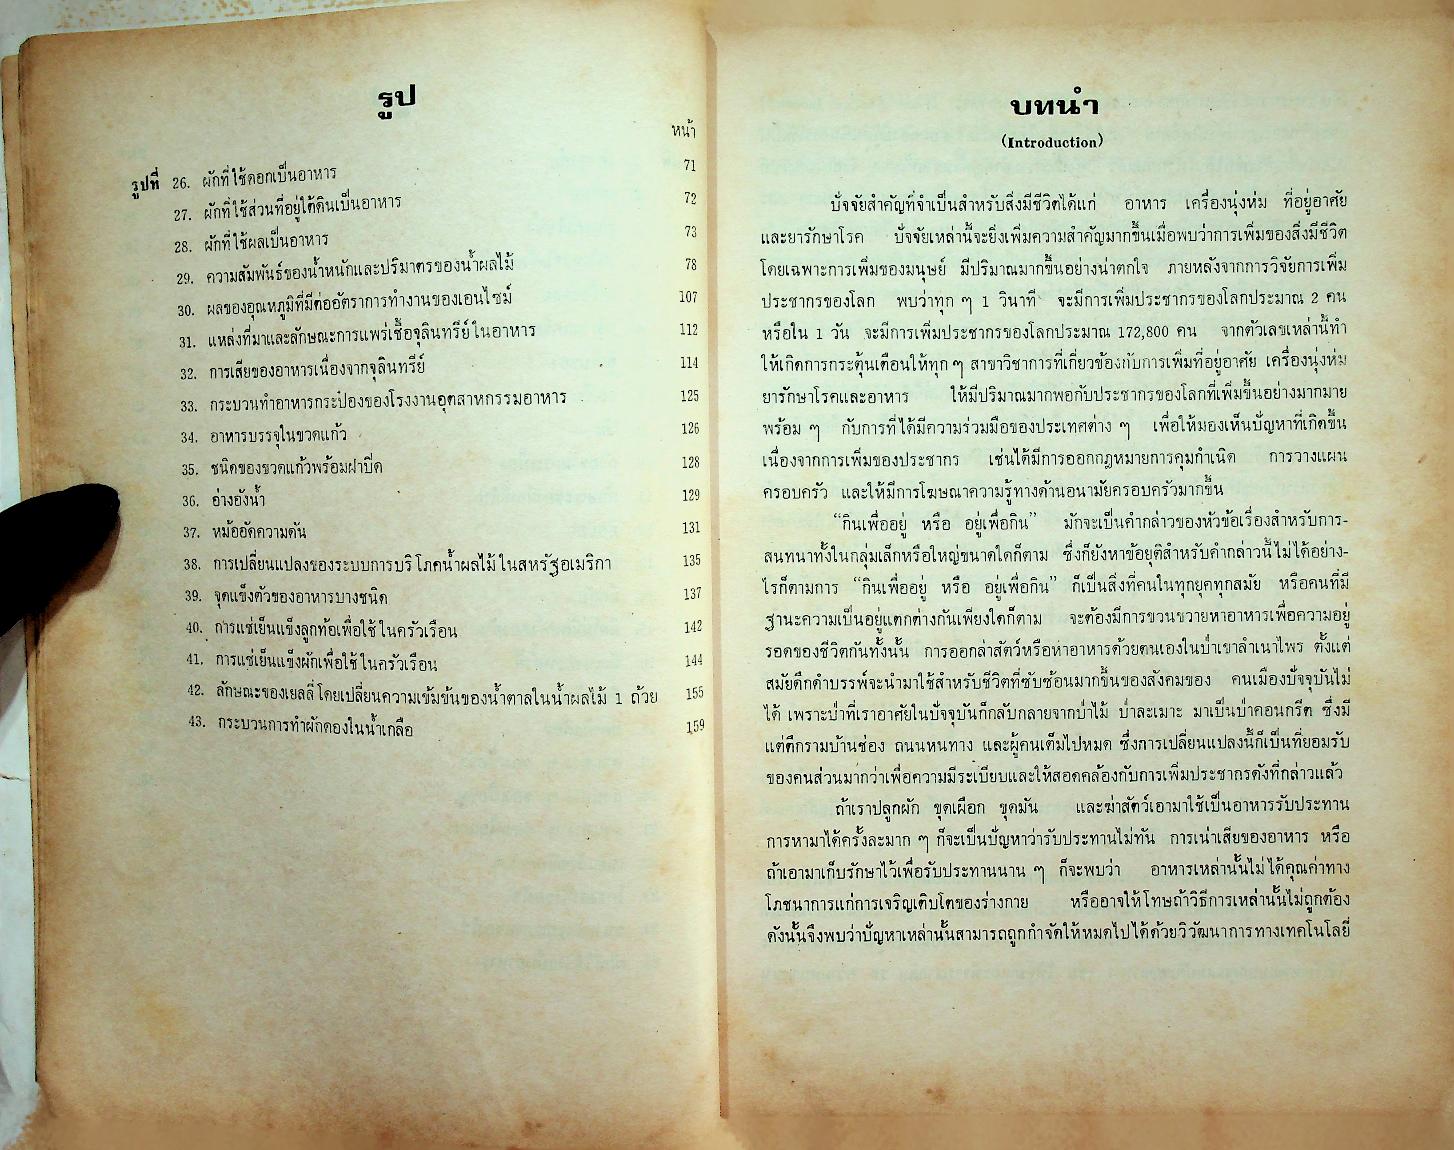 รูป
หน้า
รูปที่ 26. ผักที่ใช้ดอกเป็นอาหาร 71
27. ผักที่ใช้ส่วนที่อยู่ใต้ดินเป็นอาหาร 72
28. ผักที่ใช้ผลเป็นอาหาร 73
29. ความสัมพันธ์ของน้ำหนักและปริมาตรของน้ำผลไม้ 78
30. ผลของอุณหภูมิที่มีต่ออัตราการทำงานของเอนไซม์ 107
31. แหล่งที่มาและลักษณะการแพร่เชื้อจุลินทรีย์ในอาหาร 112
32. การเสียของอาหารเนื่องจากจุลินทรีย์ 114
33. กระบวนทำอาหารกระป๋องของโรงงานอุตสาหกรรมอาหาร 125
34. อาหารบรรจุในขวดแก้ว 126
35. ชนิดของขวดแก้วพร้อมฝาปิด 128
36. อ่างอังน้ำ 129
37. หม้ออัดความดัน 131
38. การเปลี่ยนแปลงของระบบการบริโภคน้ำผลไม้ในสหรัฐอเมริกา 135
39. จุดแข็งตัวของอาหารบางชนิด 137
40. การแช่เย็นแข็งลูกท้อเพื่อใช้ในครัวเรือน 142
41. การแช่เย็นแข็งผักเพื่อใช้ในครัวเรือน 144
42. ลักษณะของเยลลี่โดยเปลี่ยนความเข้มข้นของน้ำตาลในน้ำผลไม้ 1 ถ้วย 155
43. กระบวนการทำผักดองในน้ำเกลือ 159
บทนำ
(Introduction)
ปัจจัยสำคัญที่จำเป็นสำหรับสิ่งมีชีวิตได้แก่ อาหาร เครื่องนุ่งห่ม ที่อยู่อาศัย
และยารักษาโรค ปัจจัยเหล่านี้จะยิ่งเพิ่มความสำคัญมากขึ้นเมื่อพบว่าการเพิ่มของสิ่งมีชีวิต
โดยเฉพาะการเพิ่มของมนุษย์ มีปริมาณมากขึ้นอย่างน่าตกใจ ภายหลังจากการวิจัยการเพิ่ม
ประชากรของโลก พบว่าทุก ๆ 1 วินาที จะมีการเพิ่มประชากรของโลกประมาณ 2 คน
หรือใน 1 วัน จะมีการเพิ่มประชากรของโลกประมาณ 172,800 คน จากตัวเลขเหล่านี้ทำ
ให้เกิดการกระตุ้นเตือนให้ทุก ๆ สาขาวิชาการที่เกี่ยวข้องกับการเพิ่มที่อยู่อาศัย เครื่องนุ่งห่ม
ยารักษาโรคและอาหาร ให้มีปริมาณมากพอกับประชากรของโลกที่เพิ่มขึ้นอย่างมากมาย
พร้อม ๆ กับการที่ได้มีความร่วมมือของประเทศต่าง ๆ เพื่อให้มองเห็นปัญหาที่เกิดขึ้น
เนื่องจากการเพิ่มของประชากร เช่นได้มีการออกกฎหมายการคุมกำเนิด การวางแผน
ครอบครัว และให้มีการโฆษณาความรู้ทางด้านอนามัยครอบครัวมากขึ้น
“กินเพื่ออยู่ หรือ อยู่เพื่อกิน” มักจะเป็นคำกล่าวของหัวข้อเรื่องสำหรับการ-
สนทนาทั้งในกลุ่มเล็กหรือใหญ่ขนาดใดก็ตาม ซึ่งก็ยังหาข้อยุติสำหรับคำกล่าวนี้ไม่ได้อย่าง-
ไรก็ตามการ “กินเพื่ออยู่ หรือ อยู่เพื่อกิน” ก็เป็นสิ่งที่คนในทุกยุคทุกสมัย หรือคนที่มี
ฐานะความเป็นอยู่แตกต่างกันเพียงใดก็ตาม จะต้องมีการขวนขวายหาอาหารเพื่อความอยู่
รอดของชีวิตกันทั้งนั้น การออกล่าสัตว์หรือหาอาหารด้วยตนเองในป่าเขาลำเนาไพร ตั้งแต่
สมัยดึกดำบรรพ์จะนำมาใช้สำหรับชีวิตที่ซับซ้อนมากขึ้นของสังคมของ คนเมืองปัจจุบันไม่
ได้ เพราะป่าที่เราอาศัยในปัจจุบันก็กลับกลายจากป่าไม้ ป่าละเมาะ มาเป็นป่าคอนกรีต ซึ่งมี
แต่ตึกรามบ้านช่อง ถนนหนทาง และผู้คนเต็มไปหมด ซึ่งการเปลี่ยนแปลงนี้ก็เป็นที่ยอมรับ
ของคนส่วนมากว่าเพื่อความมีระเบียบและให้สอดคล้องกับการเพิ่มประชากรดังที่กล่าวแล้ว
ถ้าเราปลูกผัก ขุดเผือก ขุดมัน และฆ่าสัตว์เอามาใช้เป็นอาหารรับประทาน
การหามาได้ครั้งละมาก ๆ ก็จะเป็นปัญหาว่ารับประทานไม่ทัน การเน่าเสียของอาหาร หรือ
ถ้าเอามาเก็บรักษาไว้เพื่อรับประทานนาน ๆ ก็จะพบว่า อาหารเหล่านั้นไม่ได้คุณค่าทาง
โภชนาการแก่การเจริญเติบโตของร่างกาย หรืออาจให้โทษถ้าวิธีการเหล่านั้นไม่ถูกต้อง
ดังนั้นจึงพบว่าปัญหาเหล่านั้นสามารถถูกกำจัดให้หมดไปได้ด้วยวิวัฒนาการทางเทคโนโลยี่